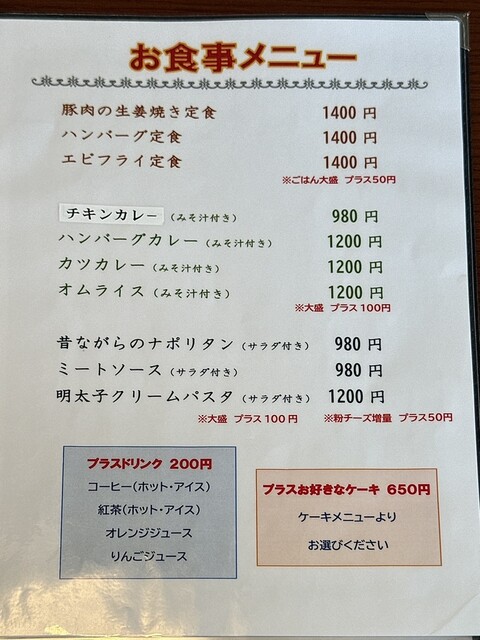 お食事メニュー
豚肉の生姜焼き定食 1400 円
ハンバーグ定食 1400 円
エビフライ定食 1400 円
※ごはん大盛 プラス50円
チキンカレー (みそ汁付き) 980 円
ハンバーグカレー (みそ汁付き) 1200 円
カツカレー (みそ汁付き) 1200 円
オムライス (みそ汁付き) 1200 円
※大盛 プラス100円
昔ながらのナポリタン (サラダ付き) 980 円
ミートソース (サラダ付き) 980 円
明太子クリームパスタ (サラダ付き) 1200 円
※大盛 プラス100円 ※粉チーズ増量 プラス50円
プラスドリンク 200円
コーヒー(ホット・アイス)
紅茶(ホット・アイス)
オレンジジュース
りんごジュース
プラスお好きなケーキ 650円
ケーキメニューより
お選びください